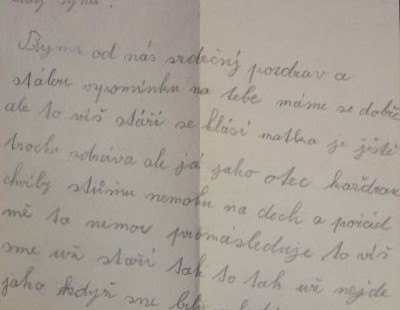 synu!
od nás srdečný pozdrav a
stálou vzpomínku na tebe máme se dobře
ale to víš stáří se hlásí matka je ještě
trochu zdráva ale já jaho otec každou
chvíly stůňu nemohu na dech a pořád
mě ta nemoc pronásleduje to víš
sme už staří tak to tak už nejde
jaho když sme byly